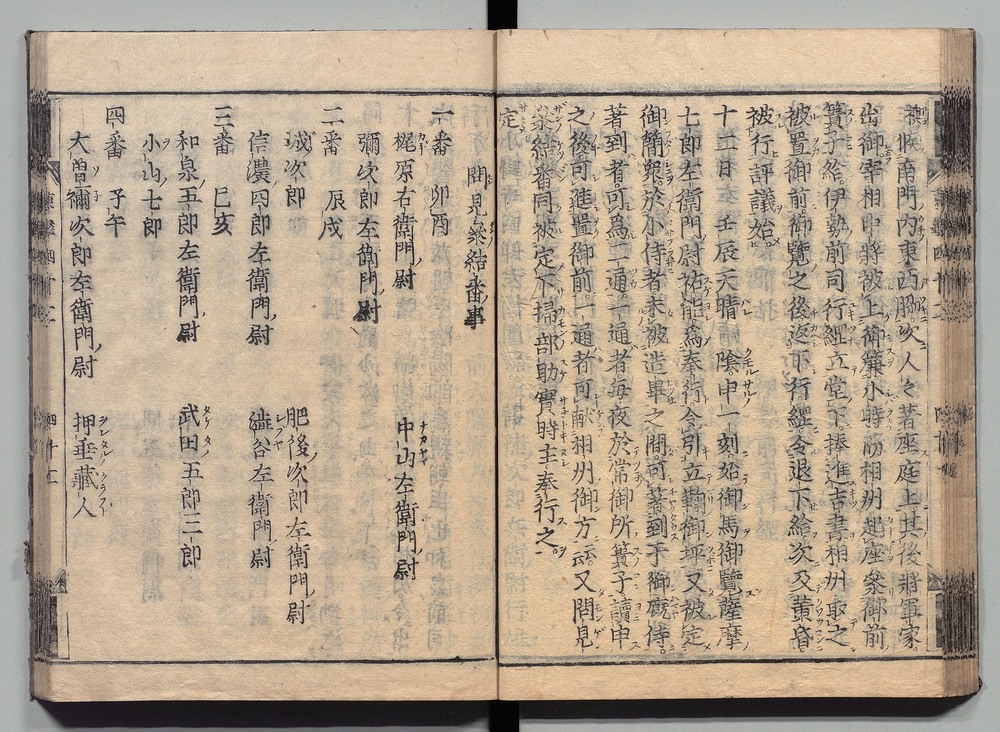 候南門内東西脇次人々著座庭上其後將軍家
出御宰相中將被上御簾小時筋相州起座參御前
簀子給伊勢前司行經立堂下捧進吉書相州取之
被置御前御覽之後返下行經令退下給次及黄昏
被行評議始
十三日 壬辰天晴陰申一刻始御馬御覽薩摩
七郎左衛門尉祐能爲奉行令引立鞠御坪又被定
御簡衆於小侍者未被造畢之間可著到于御厩侍
著到者可爲二通一通者毎夜於常御所簀子讀申
之後可進置御前一通者可献相州御方云云又問見
參結番同被定下掃部助實時主奉行之
定
問見參結番事
一番 卯酉
梶原右衛門尉 中山左衛門尉
彌次郎左衛門尉
二番 辰戌
城次郎 肥後次郎左衛門尉
信濃四郎左衛門尉 澁谷左衛門尉
三番 巳亥
和泉五郎左衛門尉 武田五郎三郎
小山七郎
四番 子午
大曽彌次郎左衛門尉 押垂藏人